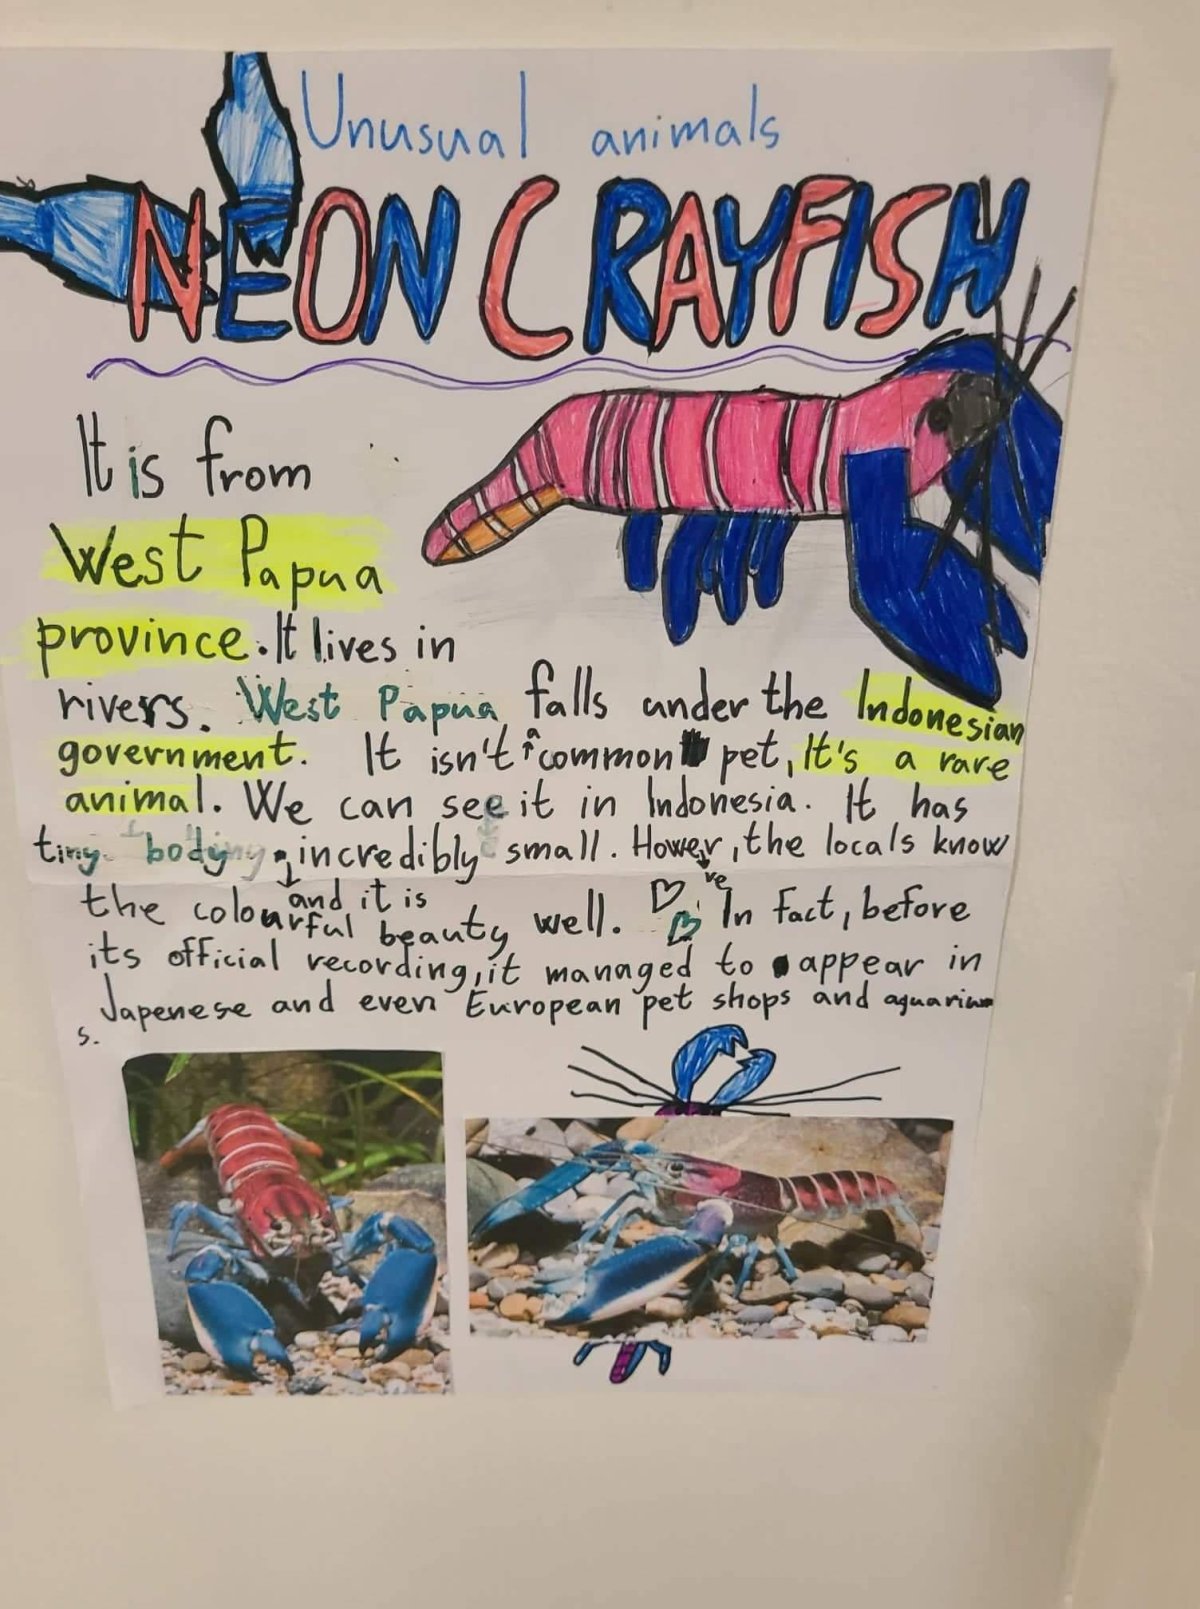 Unusual animals
NEON CRAYFISH
It is from
West Papua
province. It lives in
rivers. West Papua falls under the Indonesian
government. It isn't common pet, It's a rare
animal. We can see it in Indonesia. It has
tiny body and it is incredibly small. However, the locals know
the colourful beauty well. In fact, before
its official recording, it managed to appear in
Japenese and even European pet shops and aquarium
s.